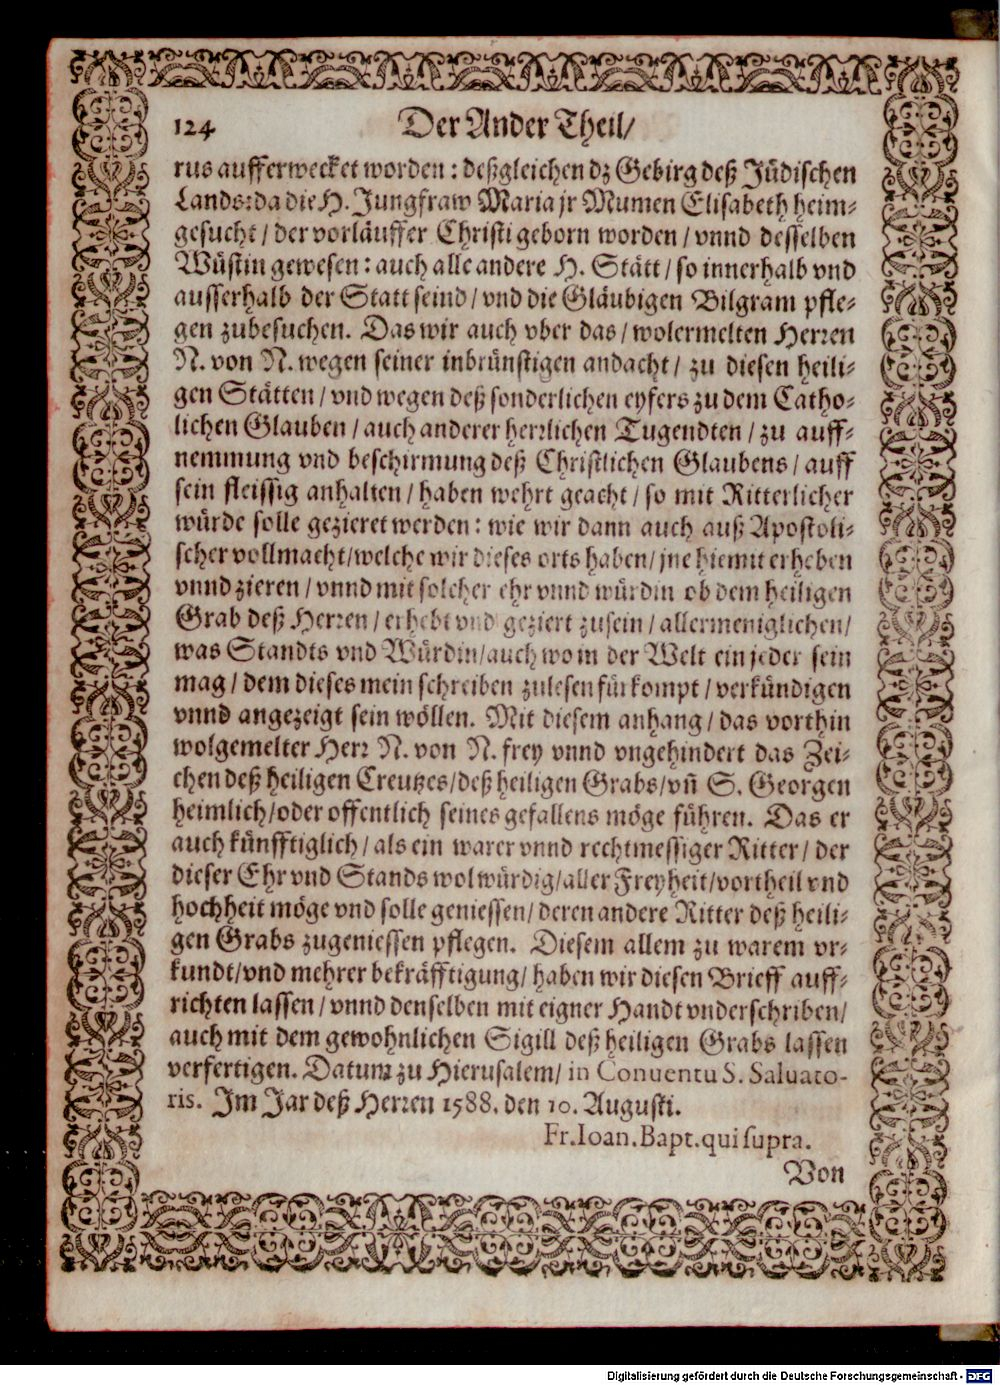 124 Der Ander Theil/
rus aufferwecket worden: deßgleichen dz Gebirg deß Jüdischen
Lands: da die H. Jungfraw Maria jr Mumen Elisabeth heim-
gesucht/ der vorläuffer Christi geborn worden/ vnnd desselben
Wüstin gewesen: auch alle andere H. Stätt/ so innerhalb vnd
ausserhalb der Statt seind/ vnd die Gläubigen Bilgram pfle-
gen zubesuchen. Das wir auch vber das/ wolermelten Herren
N. von N. wegen seiner inbrünstigen andacht/ zu diesen heili-
gen Stätten/ vnd wegen deß sonderlichen eyfers zu dem Catho-
lichen Glauben/ auch anderer herrlichen Tugendten/ zu auff-
nemmung vnd beschirmung deß Christlichen Glaubens/ auff
sein fleissig anhalten/ haben wehrt geacht/ so mit Ritterlicher
würde solle gezieret werden: wie wir dann auch auß Apostoli-
scher vollmacht/welche wir dieses orts haben/ jne hiemit erheben
vnnd zieren/ vnnd mit solcher ehr vnnd würdin ob dem heiligen
Grab deß Herren/ erhebt vnd geziert zusein/ allermeniglichen/
was Standts vnd Würdin/auch wo in der Welt ein jeder sein
mag/ dem dieses mein schreiben zulesen fürkompt/ verkündigen
vnnd angezeigt sein wöllen. Mit diesem anhang/ das vorthin
wolgemelter Herr N. von N. frey vnnd vngehindert das Zei-
chen deß heiligen Creutzes/deß heiligen Grabs/vñ S. Georgen
heimlich/oder offentlich seines gefallens möge führen. Das er
auch künfftiglich/ als ein warer vnnd rechtmessiger Ritter/ der
dieser Ehr vnd Stands wol würdig/aller Freyheit/vortheil vnd
hochheit möge vnd solle geniessen/ deren andere Ritter deß heili-
gen Grabs zugeniessen pflegen. Diesem allem zu warem vr-
kundt/vnd mehrer bekräfftigung/ haben wir diesen Brieff auff-
richten lassen/ vnnd denselben mit eigner Handt vnderschriben/
auch mit dem gewohnlichen Sigill deß heiligen Grabs lassen
verfertigen. Datum zu Hierusalem/ in Conuentu S. Saluato-
ris. Im Jar deß Herren 1588. den 10. Augusti.
Fr. Ioan. Bapt. qui supra.
Von
Digitalisierung gefördert durch die Deutsche Forschungsgemeinschaft - DFG